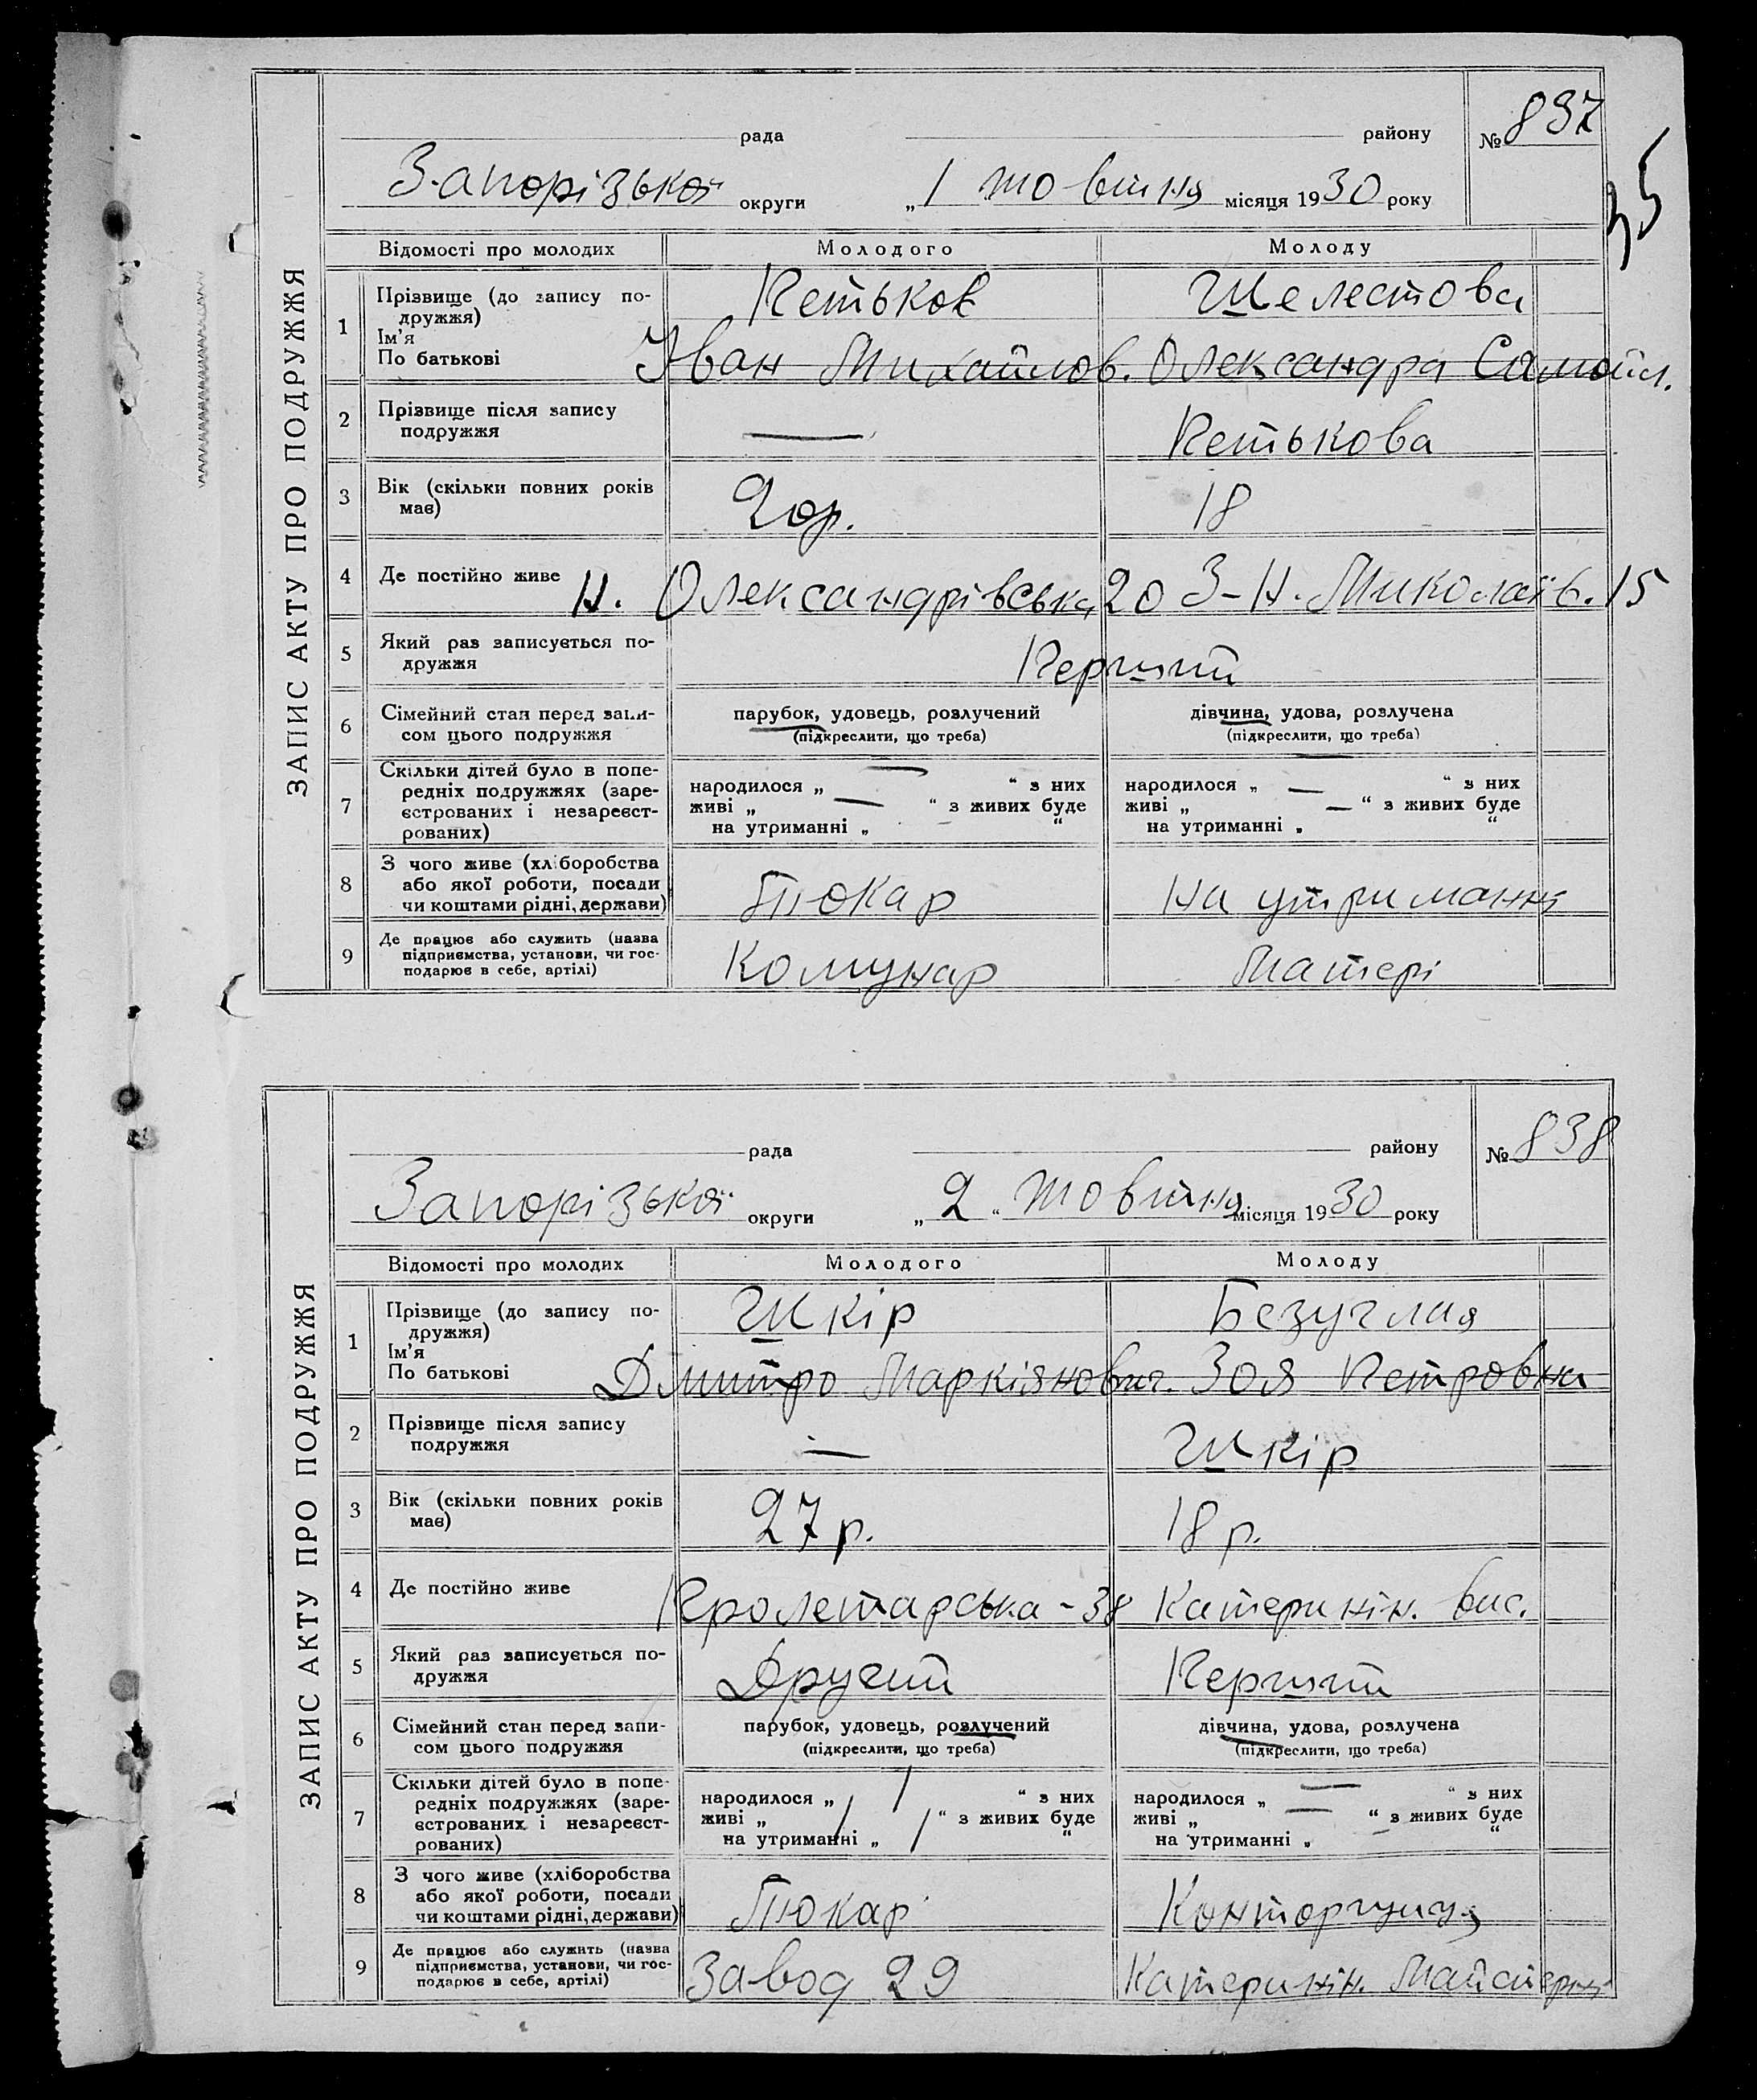 рада району № 837
35
Запорізької округи „1 жовтня місяця 1930 року
ЗАПИС АКТУ ПРО ПОДРУЖЖЯ
Відомості про молодих Молодого Молоду
1 Прізвище (до запису по-
дружжя) Петьков Шелестова
Ім'я
По батькові Іван Михайлов. Олександра Самойл.
2 Прізвище після запису
подружжя — Петькова
3 Вік (скільки повних років
має) 20р. 18
4 Де постійно живе Н. Олександрівська 20 З-Н. Миколаїв. 15
5 Який раз записується по-
дружжя Перший
6 Сімейний стан перед запи-
сом цього подружжя
парубок, удовець, розлучений дівчина, удова, розлучена
(підкреслити, що треба) (підкреслити, що треба)
7 Скільки дітей було в попе-
редніх подружжях (заре-
єстрованих і незареєст-
рованих)
народилося „ — “ з них народилося „ — “ з них
живі „ — “ з живих буде живі „ — “ з живих буде
на утриманні „ “ на утриманні „ “
8 З чого живе (хліборобства
або якої роботи, посади
чи коштами рідні, держави) Токар На утриманні
9 Де працює або служить (назва
підприємства, установи, чи гос-
подарює в себе, артілі) Комунар Матері
рада району № 838
Запорізької округи „2“ жовтня місяця 1930 року
ЗАПИС АКТУ ПРО ПОДРУЖЖЯ
Відомості про молодих Молодого Молоду
1 Прізвище (до запису по-
дружжя) Шкір Безуглая
Ім'я
По батькові Дмитро Маркіянович. Зоя Петровна
2 Прізвище після запису
подружжя — Шкір
3 Вік (скільки повних років
має) 27р. 18 р.
4 Де постійно живе Пролетарська - 38 Катеринін. вис.
5 Який раз записується по-
дружжя Другий Перший
6 Сімейний стан перед запи-
сом цього подружжя
парубок, удовець, розлучений дівчина, удова, розлучена
(підкреслити, що треба) (підкреслити, що треба)
7 Скільки дітей було в попе-
редніх подружжях (заре-
єстрованих і незареєст-
рованих)
народилося „ / “ з них народилося „ — “ з них
живі „ / / “ з живих буде живі „ — “ з живих буде
на утриманні „ “ на утриманні „ “
8 З чого живе (хліборобства
або якої роботи, посади
чи коштами рідні, держави) Токар Конторщиця
9 Де працює або служить (назва
підприємства, установи, чи гос-
подарює в себе, артілі) Завод 29 Катеринін. Майстерні